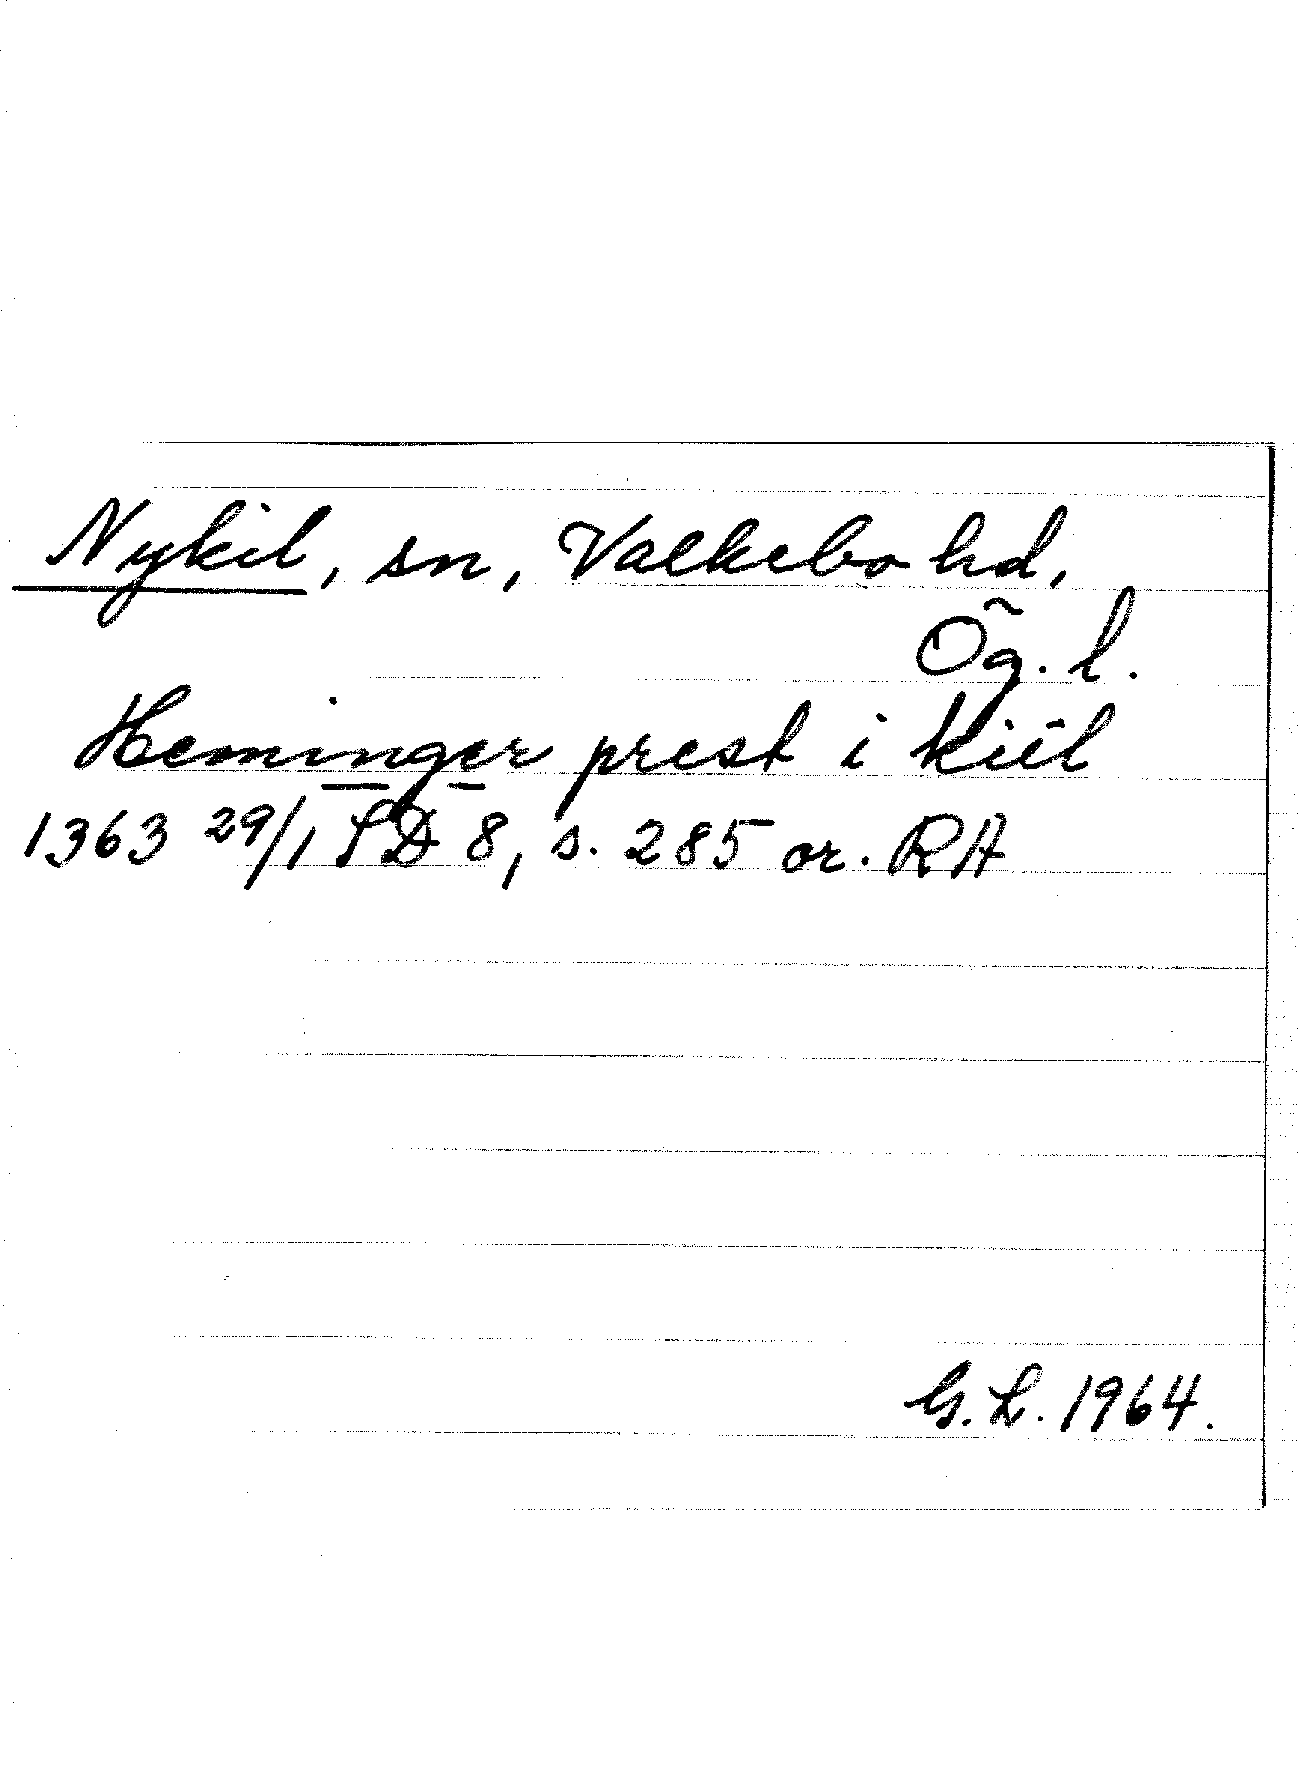 Nykil, sn, Valkebo hd,
Ög. l.
Heminger prest i kiil
1363 29/1 SD 8, s. 285 or. RA
G. L. 1964.